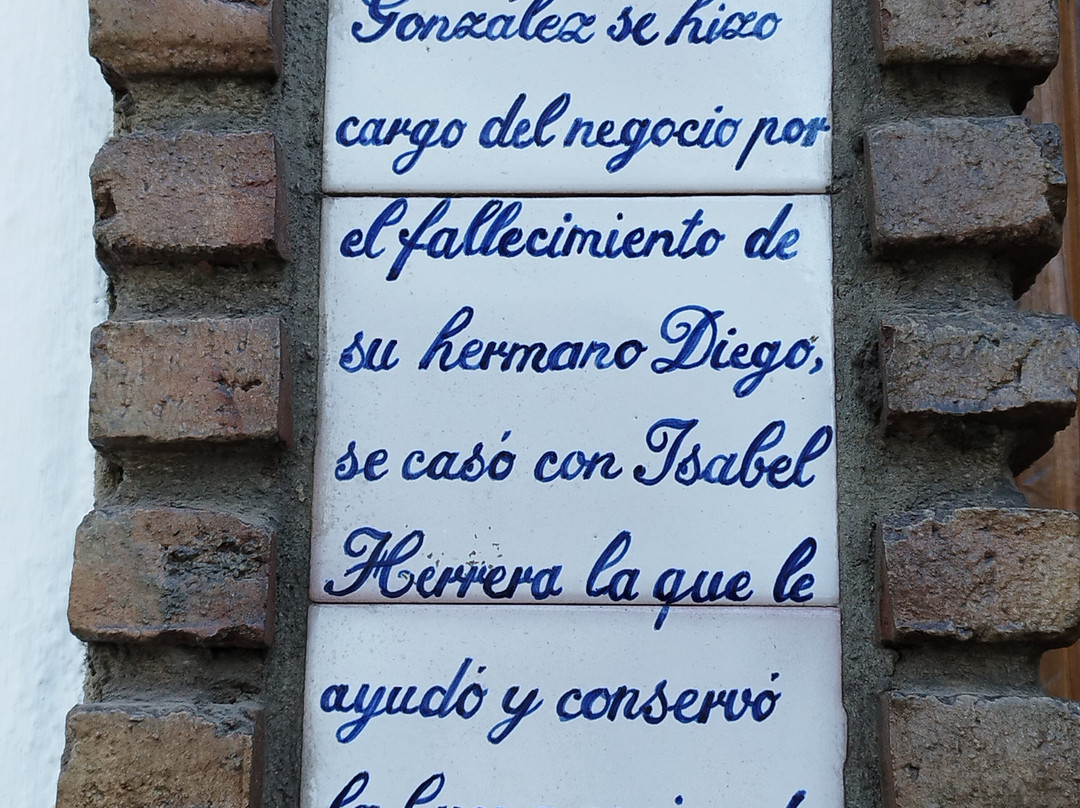 González se hizo
cargo del negocio por
el fallecimiento de
su hermano Diego,
se casó con Isabel
Herrera la que le
ayudó y conservó
la